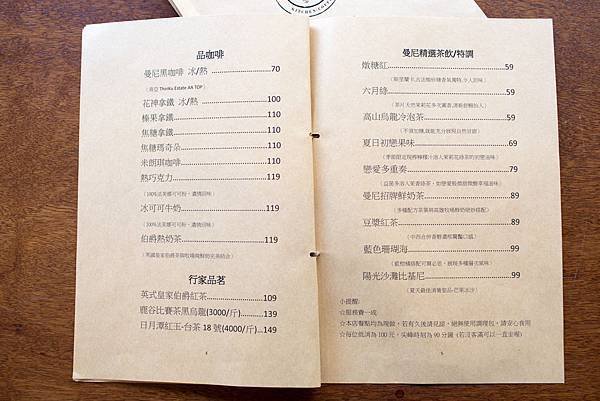 KITCHEN·COFFEE
品咖啡
曼尼黑咖啡 冰/熱 70
花神拿鐵 冰/熱 100
榛果拿鐵 110
焦糖拿鐵 110
焦糖瑪奇朵 110
米朗琪咖啡 110
熱巧克力 119
(100%法芙娜可可粉，濃情回味)
冰可可牛奶 119
(100%法芙娜可可粉，濃情回味)
伯爵熱奶茶 119
行家品茗
英式皇家伯爵紅茶 109
鹿谷比賽茶黑烏龍(3000/斤) 139
日月潭紅玉-台茶 18 號(4000/斤) 149
曼尼精選茶飲/特調
燉糖紅 59
六月綠 59
高山烏龍冷泡茶 59
夏日初戀果味 69
戀愛多重奏 79
曼尼招牌鮮奶茶 89
豆漿紅茶 89
藍色珊瑚海 99
陽光沙灘比基尼 99
小提醒:
☆服務費一成
☆本店餐點均為現做，若有久後請見諒，絕無使用調理包，請安心食用
☆每位低消為 100 元，尖峰時刻為 90 分鐘 (若沒客滿可以一直坐喔)